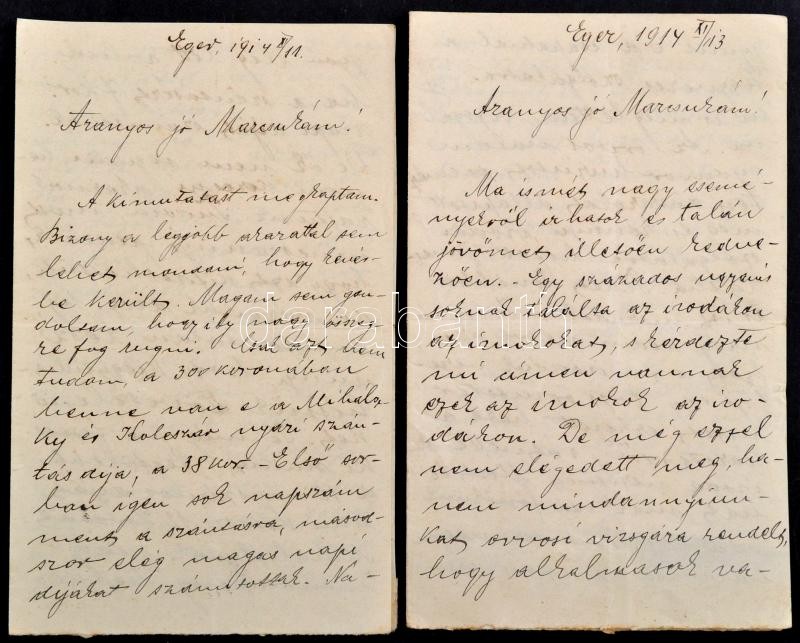 Eger, 1914 X/11.
Aranyos jó Marcsukám!
A kimutatást megkaptam.
Bizony a legjobb akarattal sem
lehet mondani, hogy kevés-
be került. Magam sem gon-
doltam, hogy ily nagy összeg-
re fog rugni. Csak azt nem
tudom, a 300 koronában
benne van e a Mihálo-
ky és Koleszár nyári szán-
tás díja, a 38 kor. - Első sor-
ban igen sok napszám
ment a szántásra, másod-
szor elég magas napi
díjakat számítottak. Na-
Eger, 1914 XI/13
Aranyos jó Marcsukám!
Ma ismét nagy esemé-
nyekről írhatok és talán
jövőmet illetően kedve-
zően. - Egy százados ugyanis
soknak találta az irodákon
az írnokokat, s kérdezte
mi címen vannak
ezek az írnokok az iro-
dákon. De még ezzel
nem elégedett meg, ha-
nem mindannyiun-
kat orvosi vizsgára rendelt,
hogy alkalmasok va-
darabanth